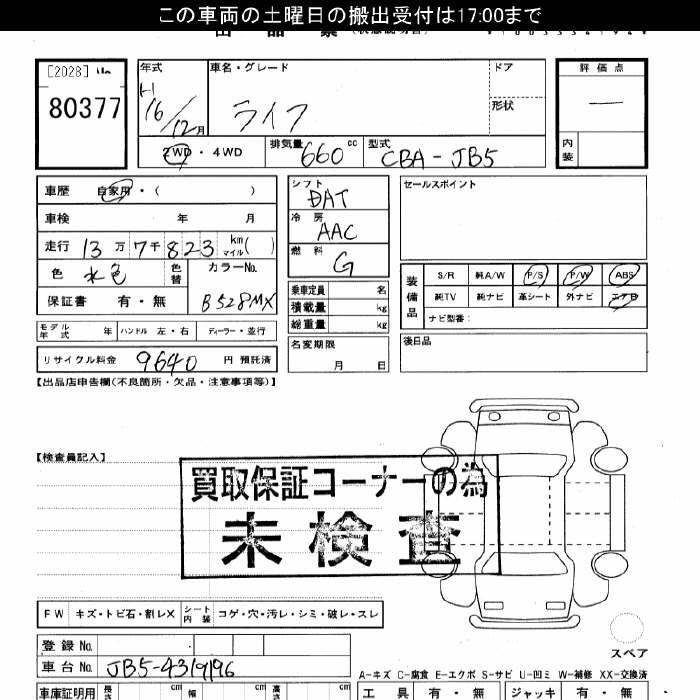 この車両の土曜日の搬出受付は17:00まで
[2028] No
80377
年式
H
16/12月
車名・グレード
ライフ
ドア
形状
評価点
—
内装
2WD・4WD
排気量
660cc
型式
CBA-JB5
車歴
自家用・( )
車検
年 月
走行
13万7千823km
マイル( )
色
水色
色替
カラーNo.
B528MX
保証書
有・無
モデル年式
年
ハンドル 左・右
ディーラー・並行
リサイクル料金
9640
円 預託済
シフト
DAT
冷房
AAC
燃料
G
乗車定員 名
積載量 kg
総重量 kg
名変期限
月 日
セールスポイント
装備品
S/R 純A/W P/S P/W ABS
純TV 純ナビ 革シート 外ナビ エアB
ナビ型番:
後日品
【出品店申告欄(不良箇所・欠品・注意事項等)】
【検査員記入】
買取保証コーナーの為
未検査
FW キズ・トビ石・割レX
シート内装 コゲ・穴・汚レ・シミ・破レ・スレ
スペア
登録No.
車台No.
JB5-4319196
A-キズ C-腐食 E-エクボ S-サビ U-凹ミ W-補修 XX-交換済
車庫証明用 長さ cm 幅 cm 高さ cm
工具 有・無 ジャッキ 有・無